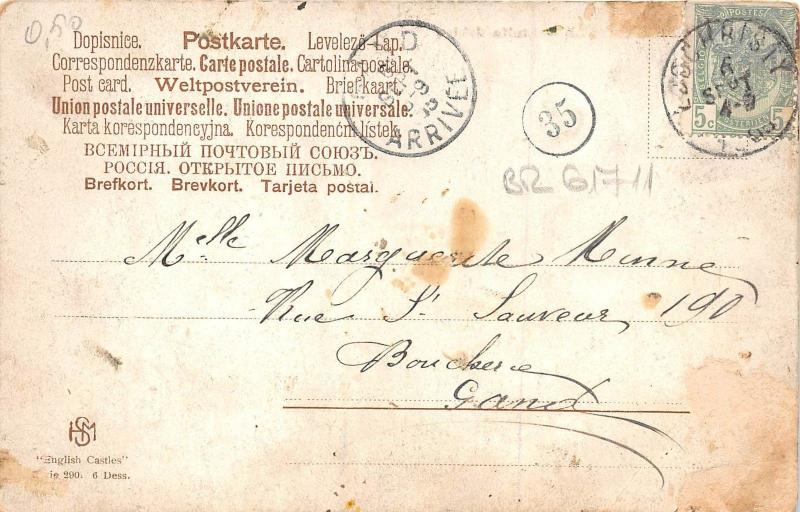 0,50
Dopisnice. Postkarte. Levelező-Lap.
Correspondenzkarte. Carte postale. Cartolina postale.
Post card. Weltpostverein. Briefkaart.
Union postale universelle. Unione postale universale.
Karta korespondencyjna. Korespondenční lístek.
ВСЕМІРНЫЙ ПОЧТОВЫЙ СОЮЗЪ.
РОССІЯ. ОТКРЫТОЕ ПИСЬМО.
Brefkort. Brevkort. Tarjeta postal.
ARRIVEE
35
POSTES
5c 5c
LOOCHRISTY
6
SEPT
BR 61711
Melle Marguerite Minne
Rue St Sauveur 190
Boucherie
Gand
HSM
"English Castles"
ie 290. 6 Dess.